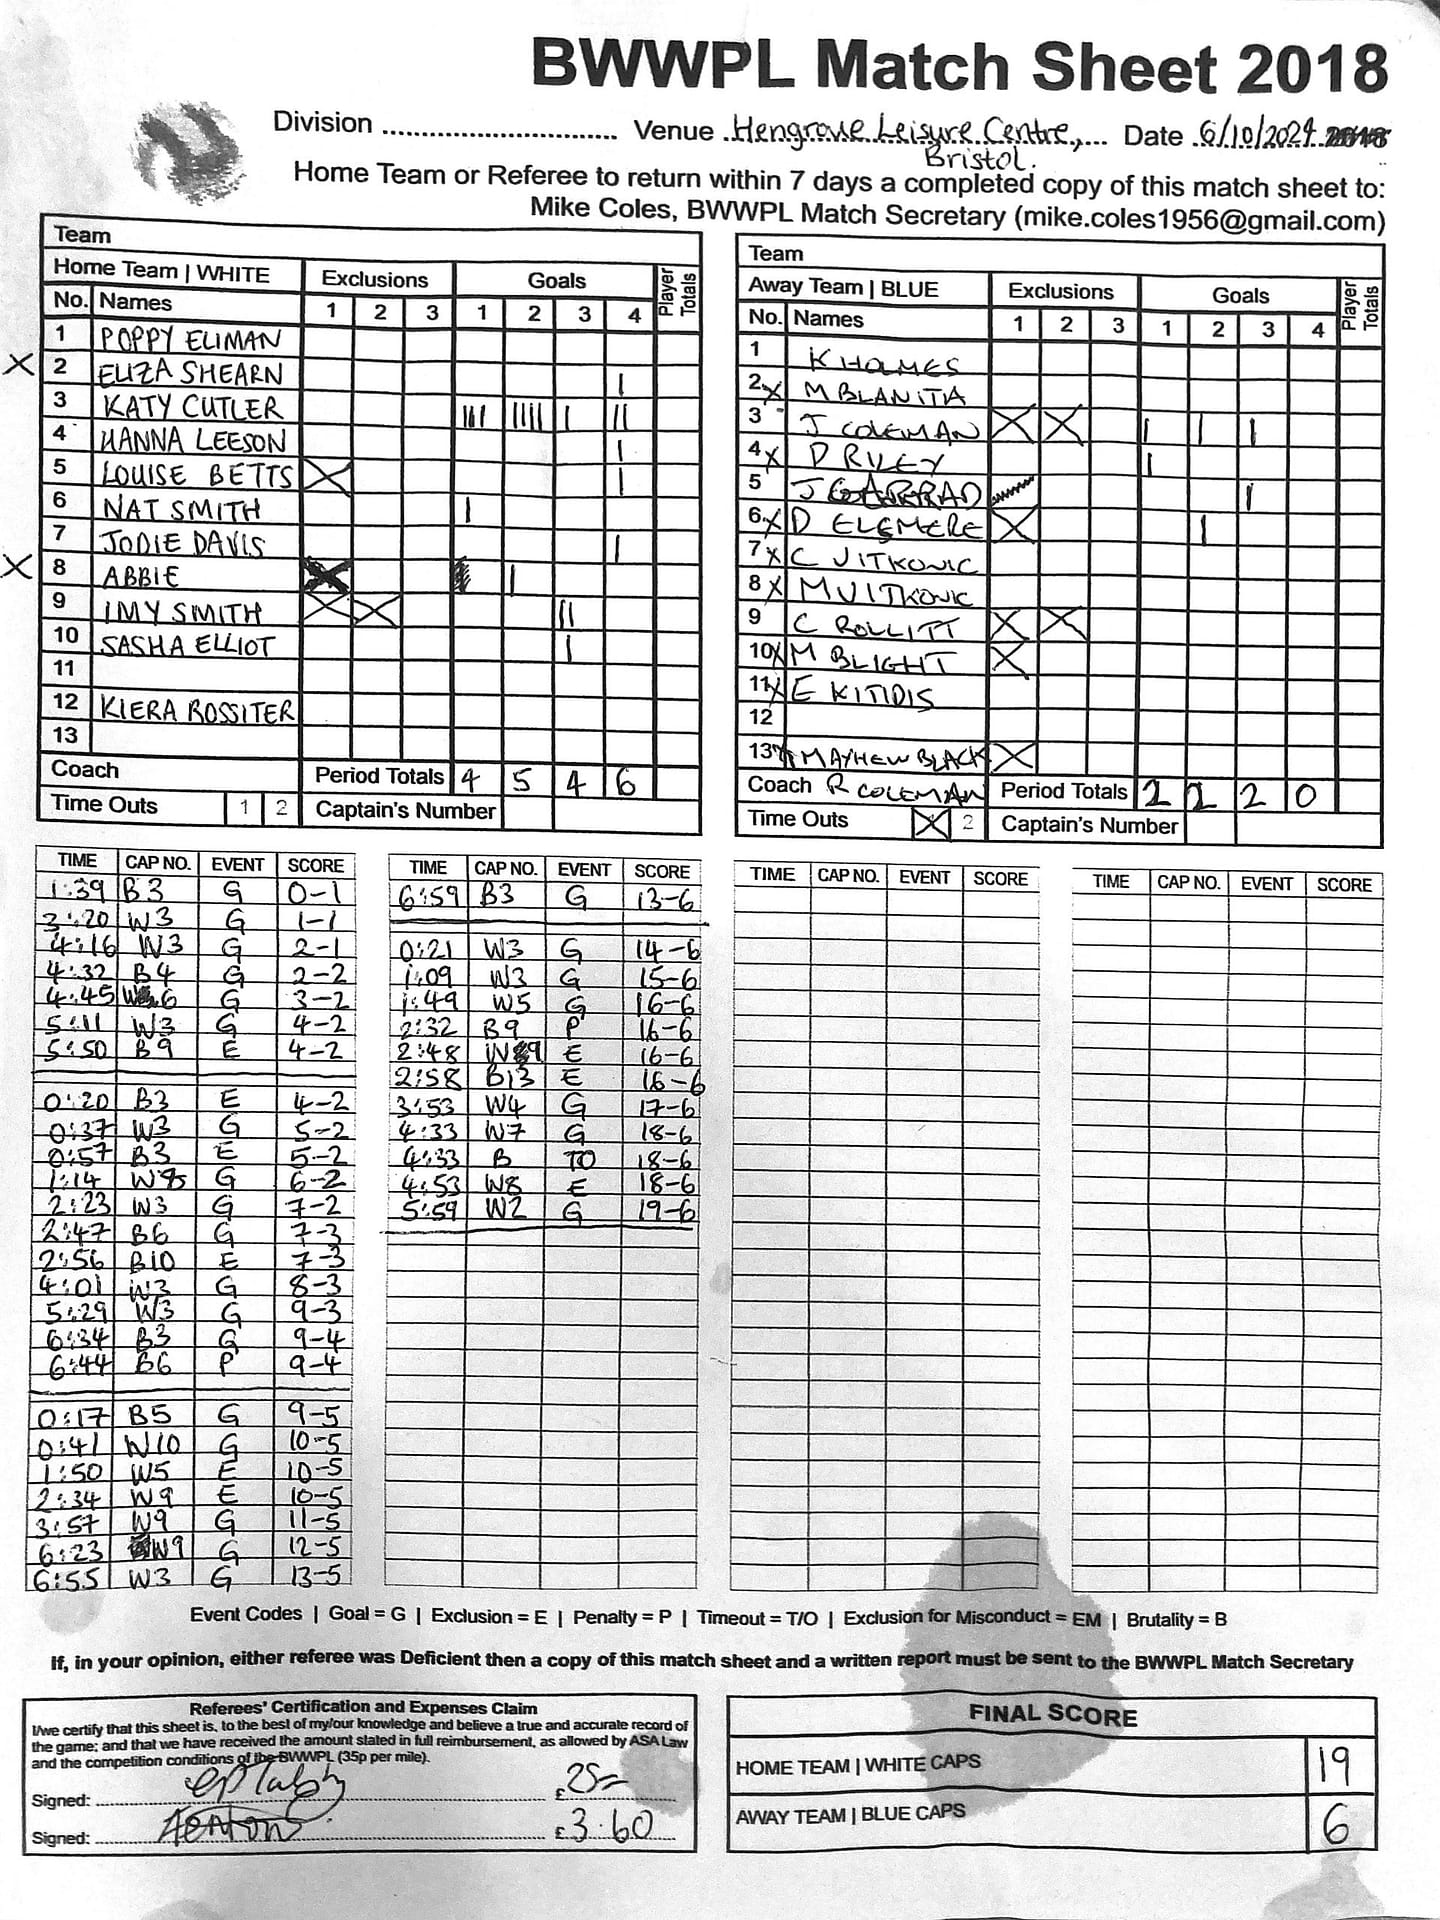 BWWPL Match Sheet 2018
Division ............................ Venue Hengrove Leisure Centre, Bristol. Date 6/10/2024
Home Team or Referee to return within 7 days a completed copy of this match sheet to:
Mike Coles, BWWPL Match Secretary (mike.coles1956@gmail.com)
Team
Home Team | WHITE Exclusions Goals Player Totals
No. Names 1 2 3 1 2 3 4
1 POPPY ELIMAN
X 2 ELIZA SHEARN |
3 KATY CUTLER ||| |||| | ||
4 HANNA LEESON |
5 LOUISE BETTS X |
6 NAT SMITH |
7 JODIE DAVIS |
X 8 ABBIE X |
9 IMY SMITH X X ||
10 SASHA ELLIOT |
11
12 KIERA ROSSITER
13
Coach Period Totals 4 5 4 6
Time Outs 1 2 Captain's Number
Team
Away Team | BLUE Exclusions Goals Player Totals
No. Names 1 2 3 1 2 3 4
1 K HOLMES
2 X M BLANITA
3 J COLEMAN X X | | |
4 X D RILEY |
5 J GARRAD |
6 X D ELEMERE X |
7 X C VITKOVIC
8 X M VITKOVIC
9 C ROLLITT X X
10 X M BLIGHT X
11 X E KITIDIS
12
13 X MAYHEW BLACK X
Coach R COLEMAN Period Totals 2 2 2 0
Time Outs X 2 Captain's Number
TIME CAP NO. EVENT SCORE
1:39 B3 G 0-1
3:20 W3 G 1-1
4:16 W3 G 2-1
4:32 B4 G 2-2
4:45 W6 G 3-2
5:11 W3 G 4-2
5:50 B9 E 4-2
0:20 B3 E 4-2
0:37 W3 G 5-2
0:57 B3 E 5-2
1:14 W8 G 6-2
2:23 W3 G 7-2
2:47 B6 G 7-3
2:56 B10 E 7-3
4:01 W3 G 8-3
5:29 W3 G 9-3
6:34 B3 G 9-4
6:44 B6 P 9-4
0:17 B5 G 9-5
0:41 W10 G 10-5
1:50 W5 E 10-5
2:34 W9 E 10-5
3:57 W9 G 11-5
6:23 W9 G 12-5
6:55 W3 G 13-5
TIME CAP NO. EVENT SCORE
6:59 B3 G 13-6
0:21 W3 G 14-6
1:09 W3 G 15-6
1:49 W5 G 16-6
2:32 B9 P 16-6
2:48 W9 E 16-6
2:58 B13 E 16-6
3:53 W4 G 17-6
4:33 W7 G 18-6
4:33 B TO 18-6
4:53 W8 E 18-6
5:59 W2 G 19-6
TIME CAP NO. EVENT SCORE
TIME CAP NO. EVENT SCORE
Event Codes | Goal = G | Exclusion = E | Penalty = P | Timeout = T/O | Exclusion for Misconduct = EM | Brutality = B
If, in your opinion, either referee was Deficient then a copy of this match sheet and a written report must be sent to the BWWPL Match Secretary
Referees' Certification and Expenses Claim
I/we certify that this sheet is, to the best of my/our knowledge and believe a true and accurate record of
the game; and that we have received the amount stated in full reimbursement, as allowed by ASA Law
and the competition conditions of the BWWPL (35p per mile).
Signed: £ 25=
Signed: £ 3.60
FINAL SCORE
HOME TEAM | WHITE CAPS 19
AWAY TEAM | BLUE CAPS 6